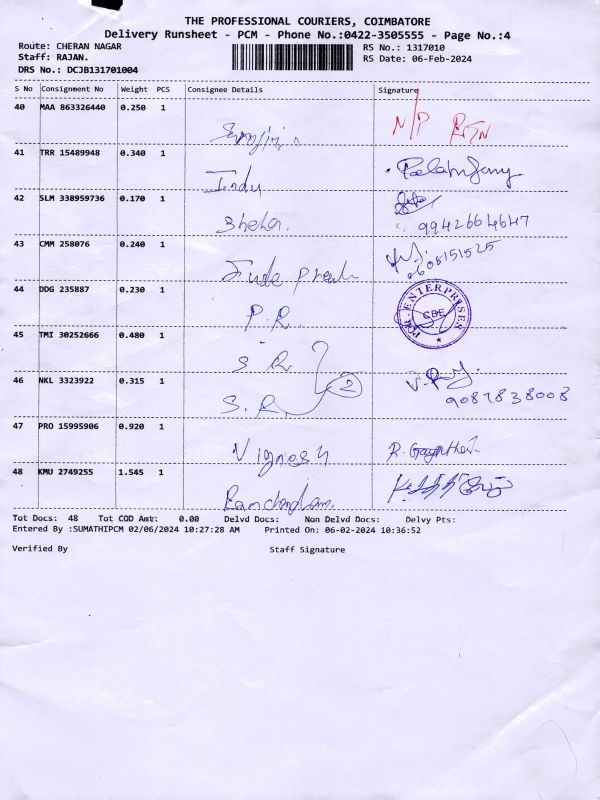 THE PROFESSIONAL COURIERS, COIMBATORE
Delivery Runsheet - PCM - Phone No.:0422-3505555 - Page No.:4
Route: CHERAN NAGAR
RS No.: 1317010
Staff: RAJAN.
RS Date: 06-Feb-2024
DRS No.: DCJB131701004
S No Consignment No Weight PCS Consignee Details Signature
40 MAA 863326440 0.250 1
N/P RTN
41 TRR 15489948 0.340 1
Indu
42 SLM 338959736 0.170 1
Sheha.
9942664647
43 CMM 258076 0.240 1
Jude
9608151525
44 DDG 235887 0.230 1
P.R.
ENTERPRISES
CBE
45 TMI 30252666 0.480 1
S.R.
46 NKL 3323922 0.315 1
S.R. 2
9087838008
47 PRO 15995906 0.920 1
Vignesh R. Gayathri
48 KMU 2749255 1.545 1
Tot Docs: 48 Tot COD Amt: 0.00 Delvd Docs: Non Delvd Docs: Delvy Pts:
Entered By :SUMATHIPCM 02/06/2024 10:27:28 AM Printed On: 06-02-2024 10:36:52
Verified By Staff Signature